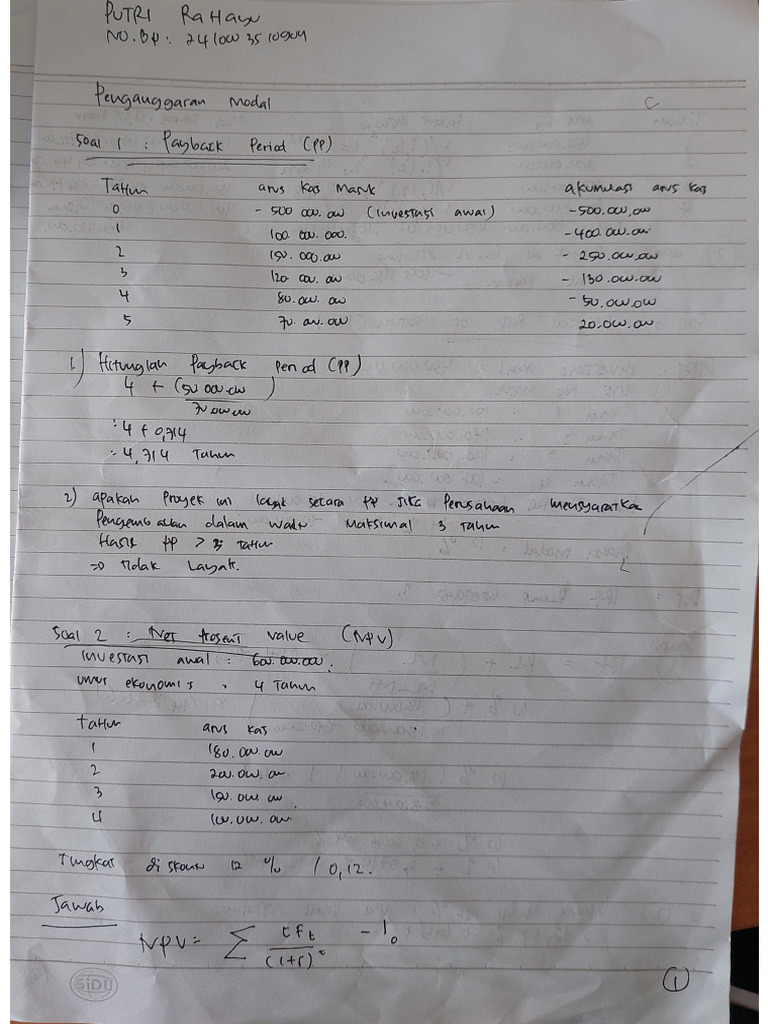 PUTRI RaHayu
NO.Bp: 2410003510904
Penganggaran modal
Soal 1 : Payback Period (PP)
Tahun arus Kas Masuk akumulasi arus kas
0 - 500 000.00 (investasi awal) -500.000,00
1 100.000.000. -400.000.00
2 150.000.00 - 250.000,00
3 120 000.00 - 130.000.00
4 80.000.00 - 50.000.00
5 70.000.00 20.000.00
1.) Hitunglah Payback Period (PP)
4 + (50 000.00)
70 000 00
: 4 + 0,714
= 4,714 Tahun
2) apakah Proyek ini layak secara PP Jika Perusahaan mensyaratkan
Pengembalian dalam waktu maksimal 3 tahun
Hasil PP > 3 tahun
=> Tidak Layak.
Soal 2 : Net Present value (NPV)
investasi awal : 600.000.000.
umur ekonomis = 4 Tahun
tahun arus kas
1 180.000.00
2 200.000.00
3 150.000.00.
4 100.000.00.
Tingkat diskoun 12 % / 0,12.
Jawab
NPV = ∑ CFt / (1+r)t - I0
SiDU
1